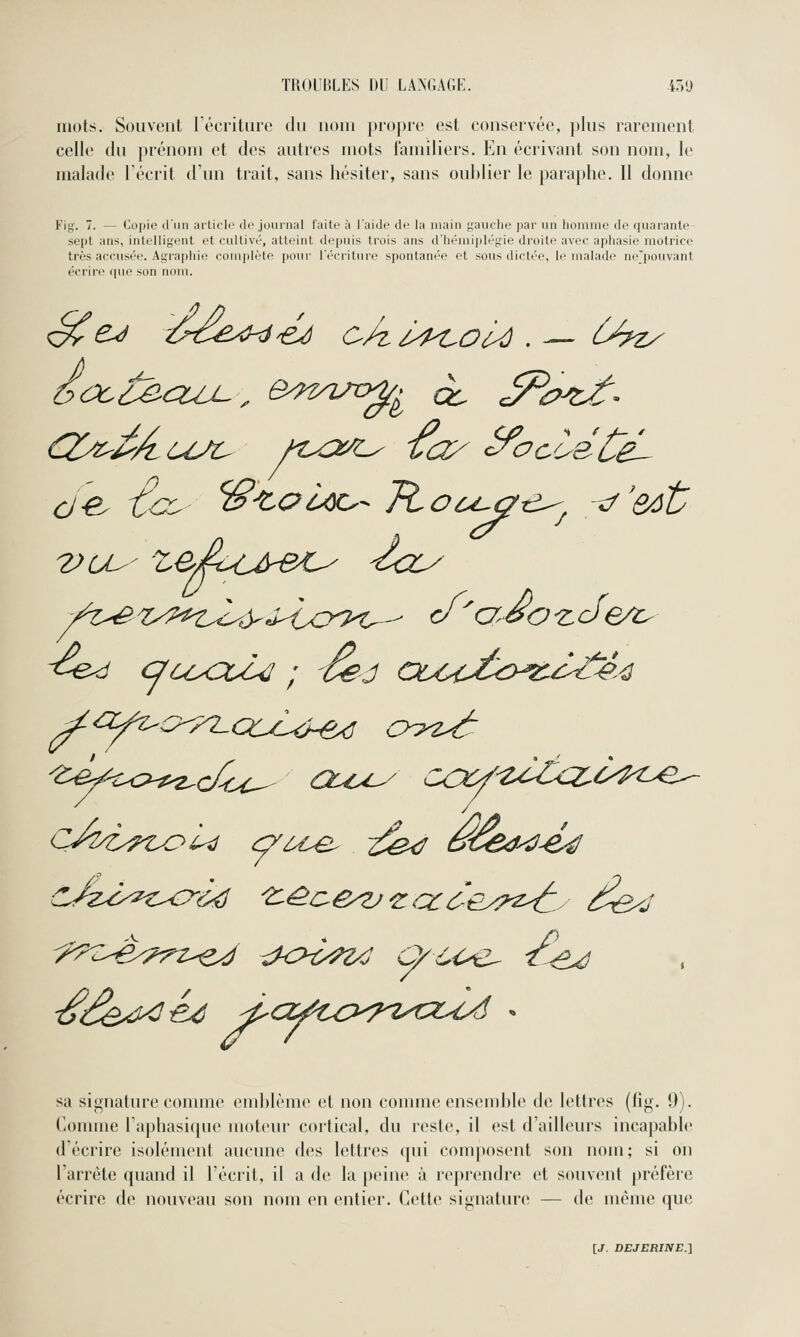 TROUBLES DU LANGAGE. 459
mots. Souvent l'écriture du nom propre est conservée, plus rarement
celle du prénom et des autres mots familiers. En écrivant son nom, le
malade l'écrit d'un trait, sans hésiter, sans oublier le paraphe. Il donne
Fig. 7. — Copie d'un article de journal faite à l'aide de la main gauche par un homme de quarante-
sept ans, intelligent et cultivé, atteint depuis trois ans d'hémiplégie droite avec aphasie motrice
très accusée. Agraphie complète pour l'écriture spontanée et sous dictée, le malade ne pouvant
écrire que son nom.
Les blessés chinois. — Un
bateau, envoyé à Port-
Arthur par la Société
de la Croix Rouge, s'est
vu refuser la
permission d'aborder
les quais ; les autorités
japonaises ont
répondu aux capitaine
chinois que les blessés
chinois recevraient les
mêmes soins que les
blessés japonais.
sa signature comme emblème et non comme ensemble de lettres (fig. 9).
Comme l'aphasique moteur cortical, du reste, il est d'ailleurs incapable
d'écrire isolément aucune des lettres qui composent son nom; si on
l'arrête quand il l'écrit, il a de la peine à reprendre et souvent préfère
écrire de nouveau son nom en entier. Cette signature — de même que
[J. DEJERINE.]